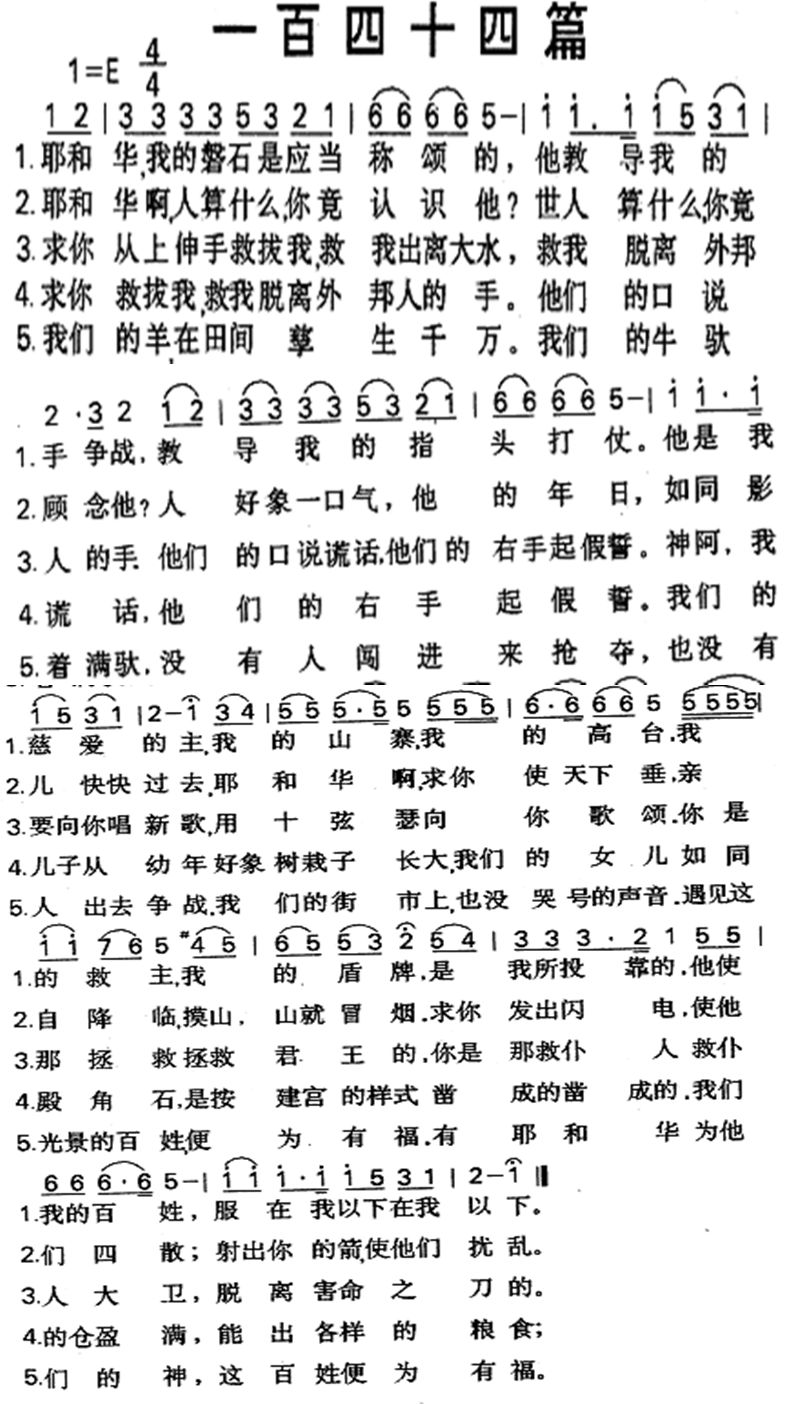 一百四十四篇
1=E 4/4
1 2 | 3 3 3 3 5 3 2 1 | 6 6 6 6 5 – | i i . i i 5 3 1 |
1.耶和 华,我的磐石是应当 称 颂 的，他教 导我 的
2.耶和 华啊,人算什么,你竟 认 识 他？世人 算什么,你竟
3.求你 从上伸手救拔我,救 我出离大水，救我 脱离 外邦
4.求你 救拔我,救我脱离外 邦人的 手。他们 的口 说
5.我们 的羊,在田间 孳 生 千 万。我们 的牛 驮
2 · 3 2 1 2 | 3 3 3 3 5 3 2 1 | 6 6 6 6 5 – | i i · i
1.手 争战，教 导 我 的 指 头 打 仗。他是 我
2.顾 念他？人 好象一口气，他 的 年 日，如同 影
3.人 的手. 他们 的口说谎话,他们的 右手起假誓。神阿，我
4.谎 话，他 们 的 右 手 起 假 誓。我们 的
5.着 满驮，没 有 人 闯 进 来 抢 夺，也没 有
i 5 3 1 | 2 – i 3 4 | 5 5 5 · 5 5 5 5 5 | 6 · 6 6 6 5 5 5 5 5 |
1.慈 爱 的 主,我 的 山 寨,我 的 高 台.我
2.儿 快快 过 去,耶 和 华 啊,求你 使 天下 垂,亲
3.要向你唱 新 歌,用 十 弦 瑟向 你 歌 颂.你 是
4.儿子从 幼 年好象 树栽子 长大,我们 的 女 儿 如 同
5.人 出去 争 战.我 们的街 市上,也没 哭 号的声音.遇见这
i i 7 6 5 #4 5 | 6 5 5 3 2 5 4 | 3 3 3 · 2 1 5 5 |
1.的 救 主,我 的 盾 牌.是 我所投 靠的.他使
2.自 降 临,摸山， 山就 冒 烟.求你 发出闪 电,使他
3.那 拯 救拯救 君 王 的.你是 那救仆 人 救仆
4.殿 角 石,是按 建宫 的样式 凿 成的凿 成的.我们
5.光景的百 姓,便 为 有 福.有 耶 和 华 为他
6 6 6 · 6 5 – | i i i · i i 5 3 1 | 2 – i ‖
1.我的百 姓，服 在 我以下在我 以 下。
2.们 四 散；射出你 的箭,使他们 扰 乱。
3.人 大 卫，脱 离 害命 之 刀 的。
4.的仓盈 满，能 出 各样 的 粮 食；
5.们 的 神，这 百 姓便 为 有 福。